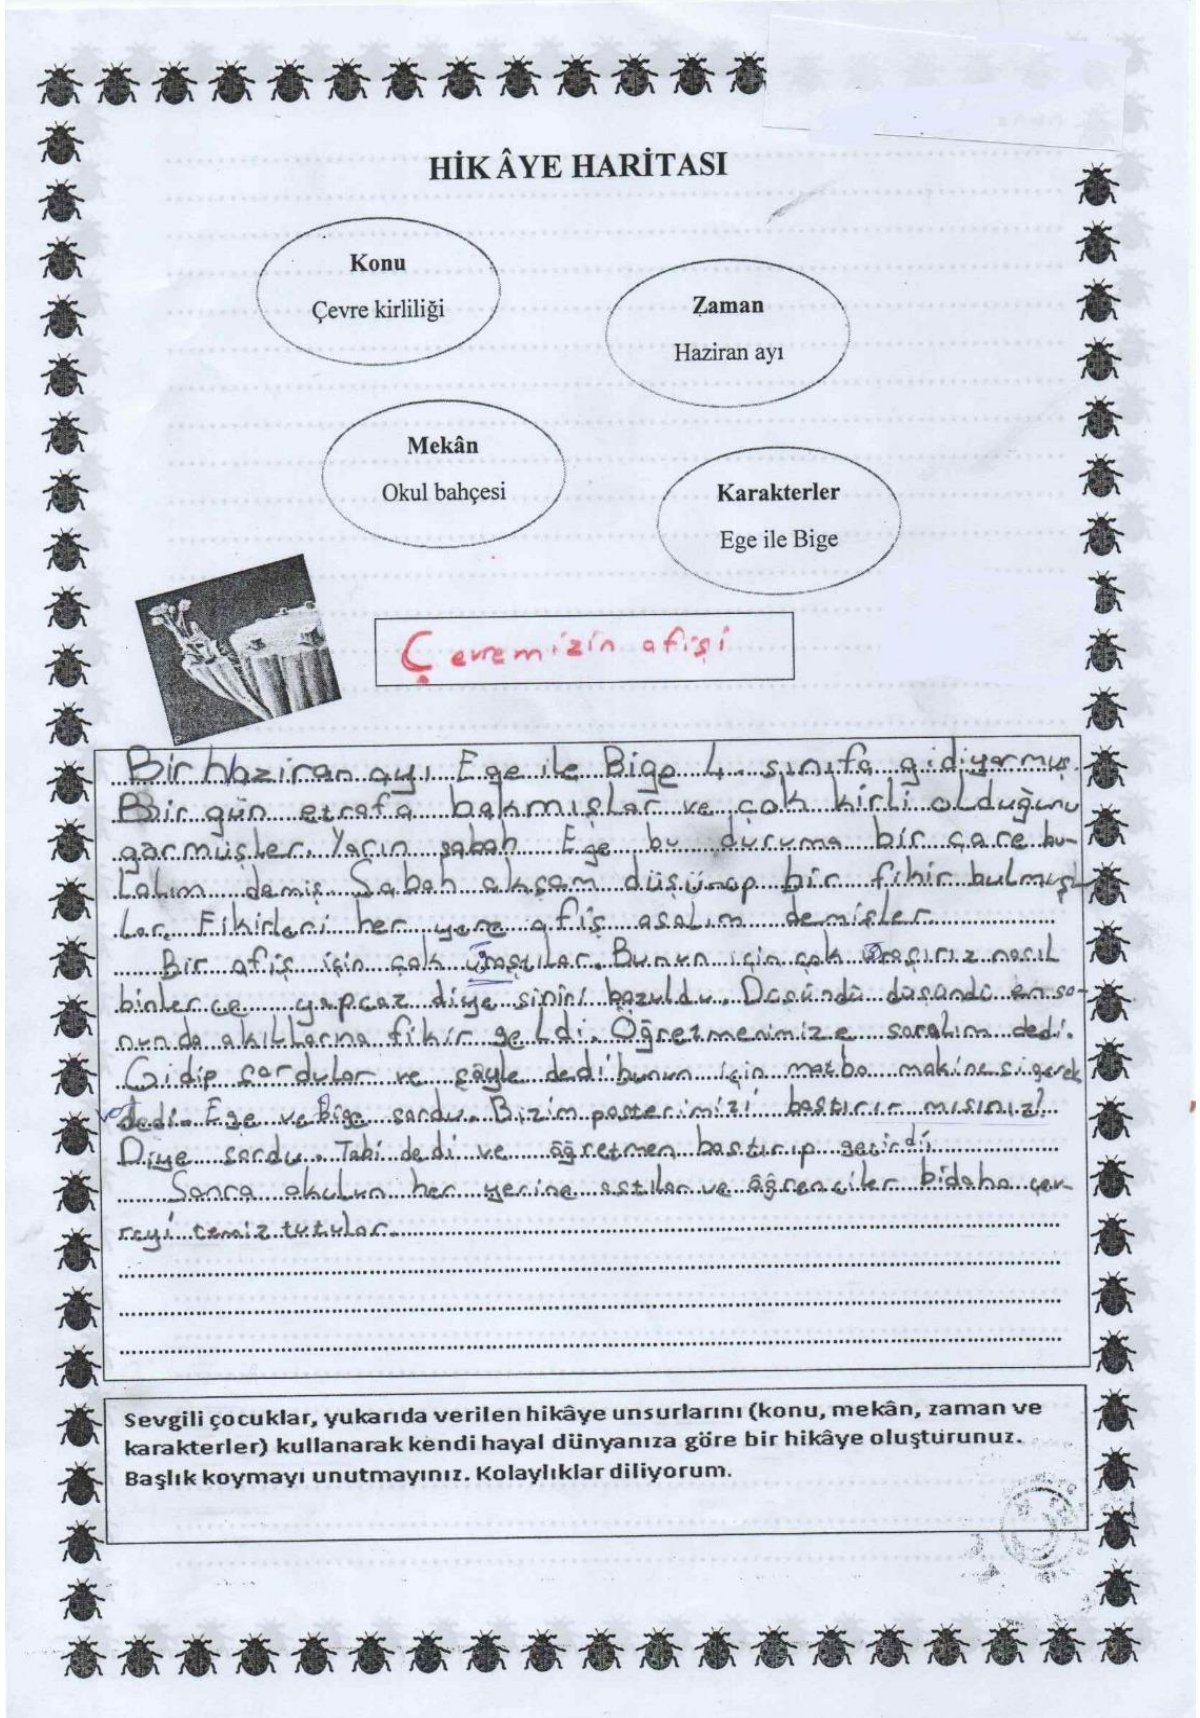 HİKÂYE HARİTASI
Konu
Çevre kirliliği
Zaman
Haziran ayı
Mekân
Okul bahçesi
Karakterler
Ege ile Bige
Çevremizin afişi
Bir haziran ayı Ege ile Bige 4. sınıfa gidiyormuş.
Bir gün etrafa bakmışlar ve çok kirli olduğunu
görmüşler. Yarın sabah Ege bu duruma bir çare bu-
lalım demiş. Sabah akşam düşünop bir fikir bulmuş
lar. Fikirleri her yere afiş asalım demişler
Bir afiş için çok uraştılar. Bunun için çok uraşırız nasıl
binlerce yapcaz diye siniri bozuldu. Düşündü düşündü en so-
nunda akıllarına fikir geldi. Öğretmenimize soralım dedi.
Gidip sordular ve şöyle dedi bunun için matba makinesi gerek
dedi. Ege ve Bige sordu. Bizim posterimizi bastırır mısınız?
Diye sordu. Tabi dedi ve öğretmen bastırıp getirdi
Sonra okulun her yerine astılar ve öğrenciler bidaha çev-
reyi temiz tutular.
Sevgili çocuklar, yukarıda verilen hikâye unsurlarını (konu, mekân, zaman ve
karakterler) kullanarak kendi hayal dünyanıza göre bir hikâye oluşturunuz.
Başlık koymayı unutmayınız. Kolaylıklar diliyorum.